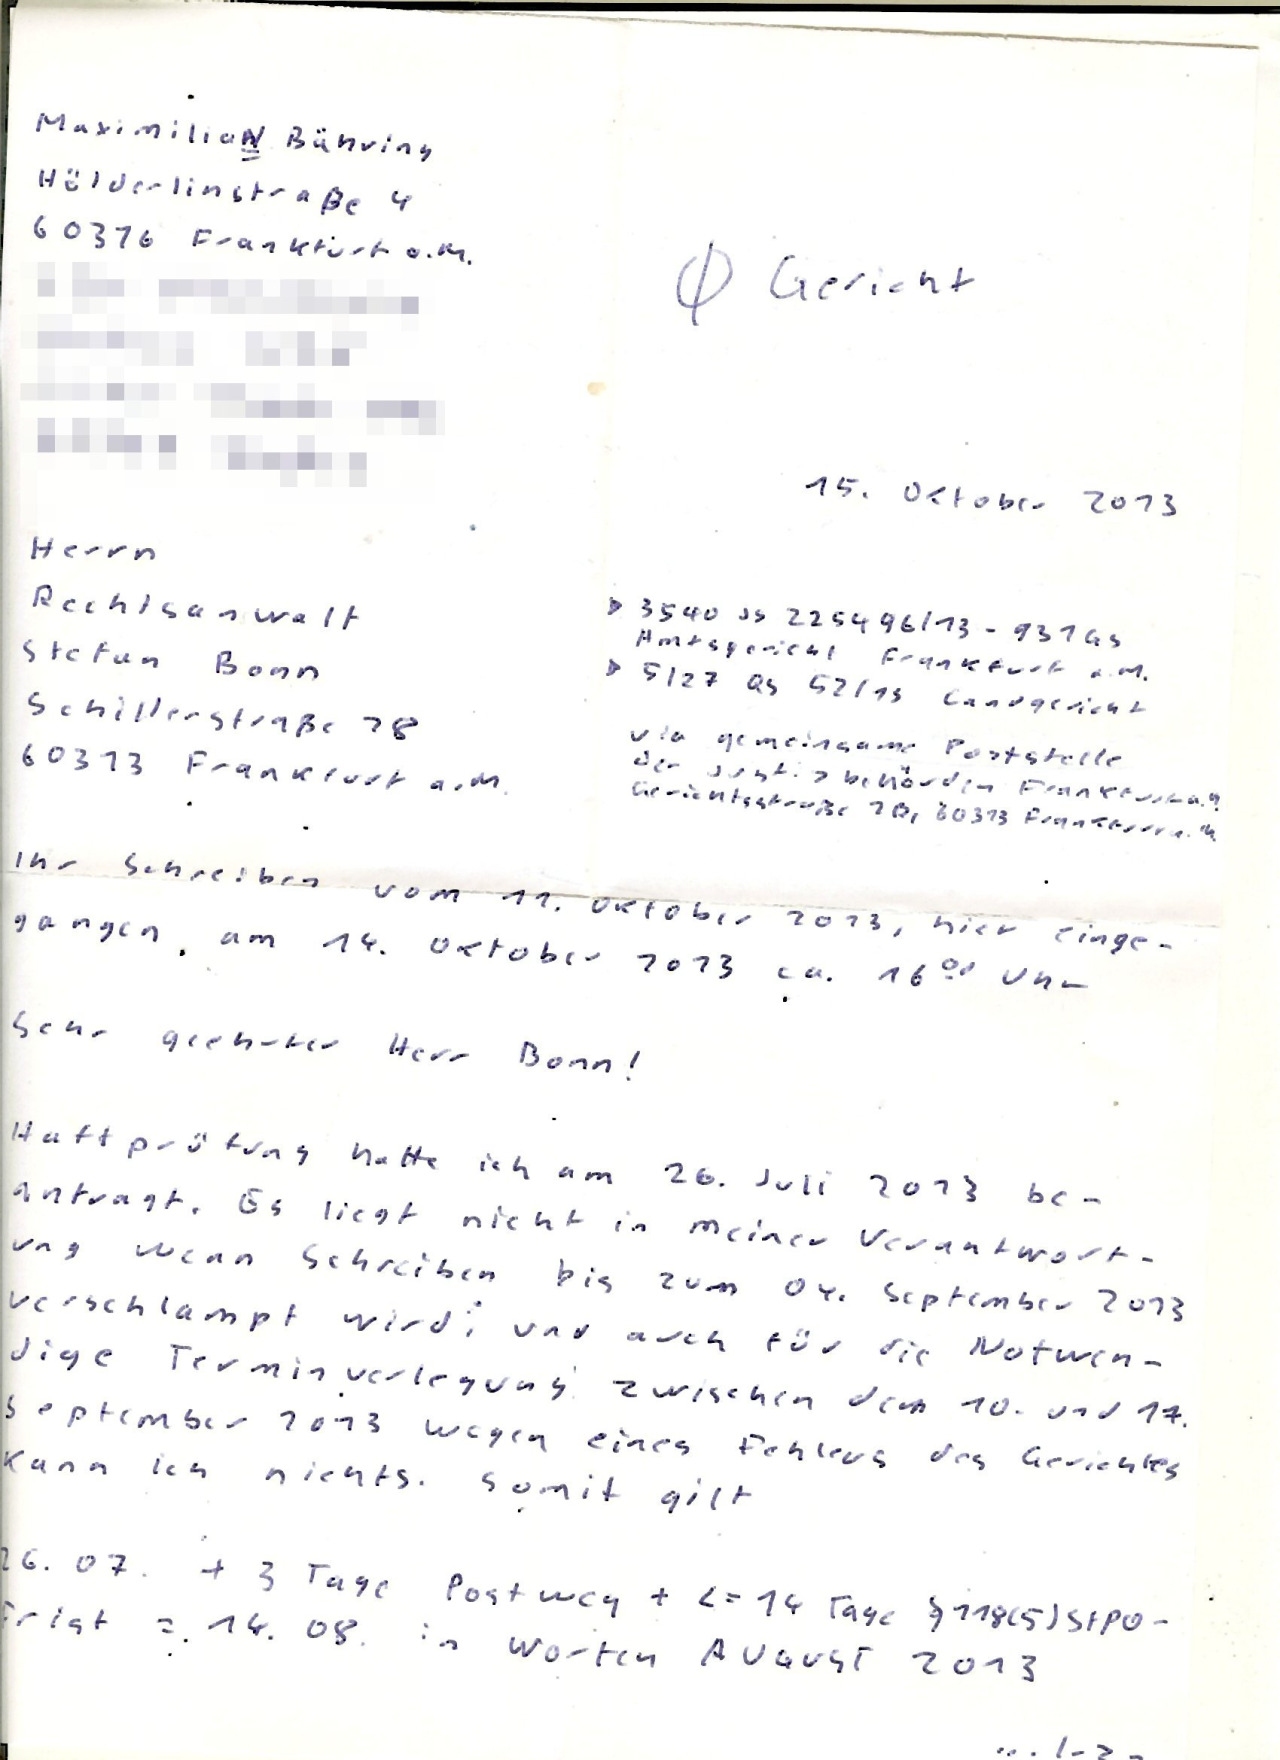 MaximiliaN Bähring
Hölderlinstraße 4
60316 Frankfurt a.M.
Φ Gericht
15. Oktober 2013
Herrn
Rechtsanwalt
Stefan Bonn
Schillerstraße 28
60313 Frankfurt a.M.
3540 Js 225496/13 - 931 Gs
Amtsgericht Frankfurt a.M.
5/27 Qs 52/13 Landgericht
via gemeinsame Poststelle
der Justizbehörden Frankfurt a.M.
Gerichtsstraße 2B, 60313 Frankfurt a.M.
Ihr Schreiben vom 11. Oktober 2013, hier einge-
gangen am 14. Oktober 2013 ca. 16⁰⁰ Uhr
Sehr geehrter Herr Bonn!
Haftprüfung hatte ich am 26. Juli 2013 be-
antragt. Es liegt nicht in meiner Verantwort-
ung wenn Schreiben bis zum 04. September 2013
verschlampt wird; und auch für die Notwen-
dige Terminverlegung zwischen dem 10. und 17.
September 2013 wegen eines Fehlers des Gerichtes
kann ich nichts. Somit gilt
26. 07. + 3 Tage Postweg + <= 14 Tage §118(5) StPO-
Frist = 14. 08. in Worten AUGUST 2013
... /-2-